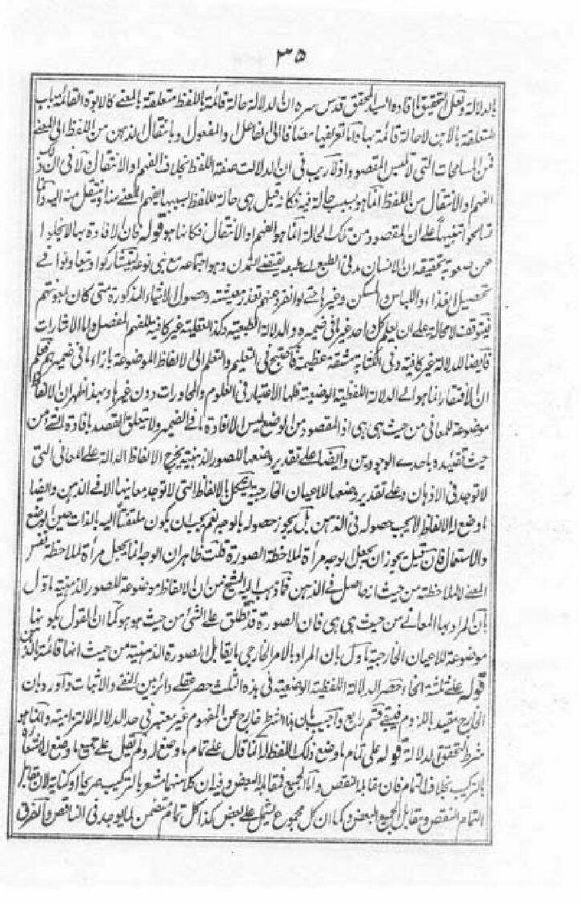 ٣٥
بالدلالة ولعل التحقيق ما افاده السيد المحقق قدس سره ان الدلالة حالة قائمة باللفظ متعلقة بالمعنى كالابوة القائمة بالاب
المتعلقة بالابن لا حالة قائمة بهما معا وتعريفها مضافا الى الفاعل والمفعول وبانتقال الذهن من اللفظ الى المعنى
من المسامحات التي لا تلبس المقصود اذ لا ريب في ان الدلالة صفة اللفظ بخلاف الفهم والانتقال
الفهم والانتقال من اللفظ انما هو بسبب حالة فيه فكانه قيل هي حالة اللفظ بسببها يفهم المعنى منه او ينتقل منه اليه وانما
تسامحوا تنبيها على ان المقصود من تلك الحالة انما هو الفهم والانتقال فكانها هو قوله فان الافادة بها لا تخلو
عن صعوبة تحقيقه ان الانسان مدني الطبع اي طبعه يقتضي التمدن وهو اجتماعه مع بني نوعه يتشاركوا ويتعاونوا في
تحصيل الغذاء واللباس والمسكن وغيرها حتى لو انفرد عنهم تعذر معيشته وحصول الاشياء المذكورة متى كان بمعونتهم
فتوقف لا محالة على ان يعلم كل واحد غيره ما في ضميره والدلالة الطبعية وكذا العقلية غير كافية للفهم المفصل واما الاشارات
فايضا الدلالة غير كافية وفي الكتابة مشقة عظيمة فاحتيج الى التعليم والتعلم الى الالفاظ الموضوعة بازاء ما في ضميرهم فعلم
ان الافتقار انما هو الى الدلالة اللفظية الوضعية فلها الاعتبار في العلوم والمحاورات دون غيرها وبهذا ظهر ان الالفاظ
موضوعة للمعاني من حيث هي هي اذ المقصود من الوضع ليس الا افادة ما في الضمير ولا يتعلق القصد بافادة الشيء من
حيث تقييده باحدى الوجودين وايضا على تقدير وضعها للصور الذهنية يخرج الالفاظ الدالة على المعاني التي
لا توجد في الاذهان وعلى تقدير وضعها للاعيان الخارجية يشكل بالالفاظ التي لا توجد معانيها الا في الذهن وايضا
ما وضع له الالفاظ لا يجب حصوله في الذهن بل يجوز حصوله بالوجه نعم يجب ان يكون ملتفتا اليه بالذات حين الوضع
والاستعمال فان قيل يجوز ان يجعل الوجه مرآة لملاحظة الصورة قلت ظاهر ان الوجه انما يجعل مرآة لملاحظة نفس
المعنى لا لملاحظته من حيث انه حاصل في الذهن فما ذهب اليه الشيخ من ان الالفاظ موضوعة للصور الذهنية ماوّل
بان المراد بها المعاني من حيث هي هي فان الصورة قد تطلق على الشيء من حيث هو هو كما ان القول بكونها
موضوعة للاعيان الخارجية ماول بان المراد بالامر الخارجي ما يقابل الصورة الذهنية من حيث انها قائمة بالذهن
قوله على ثلثة انحاء حصر الدلالة اللفظية الوضعية في هذه الثلث حصر عقلي دائر بين النفي والاثبات واورد بان
الخارج مقيد باللزوم فيبقى قسم رابع واجيب بان هذا الشرط خارج عن المفهوم غير معتبر في حد الدلالة الالتزامية وانما هو
شرط لتحقق الدلالة قوله على تمام ما وضع ذلك اللفظ له انما قال على تمام ما وضع له ولم يقل على جميع ما وضع له
بالتركيب بخلاف التمام فان مقابله النقص واما الجميع فمقابله البعض وفيه ان كلا منهما مشعر بالتركيب صريحا او كناية لان مقابل
التمام النقص ومقابل الجميع البعض وكما ان كل مجموع يشتمل على بعض كذا كل تمام يتضمن لما يوجد في الناقص والفرق